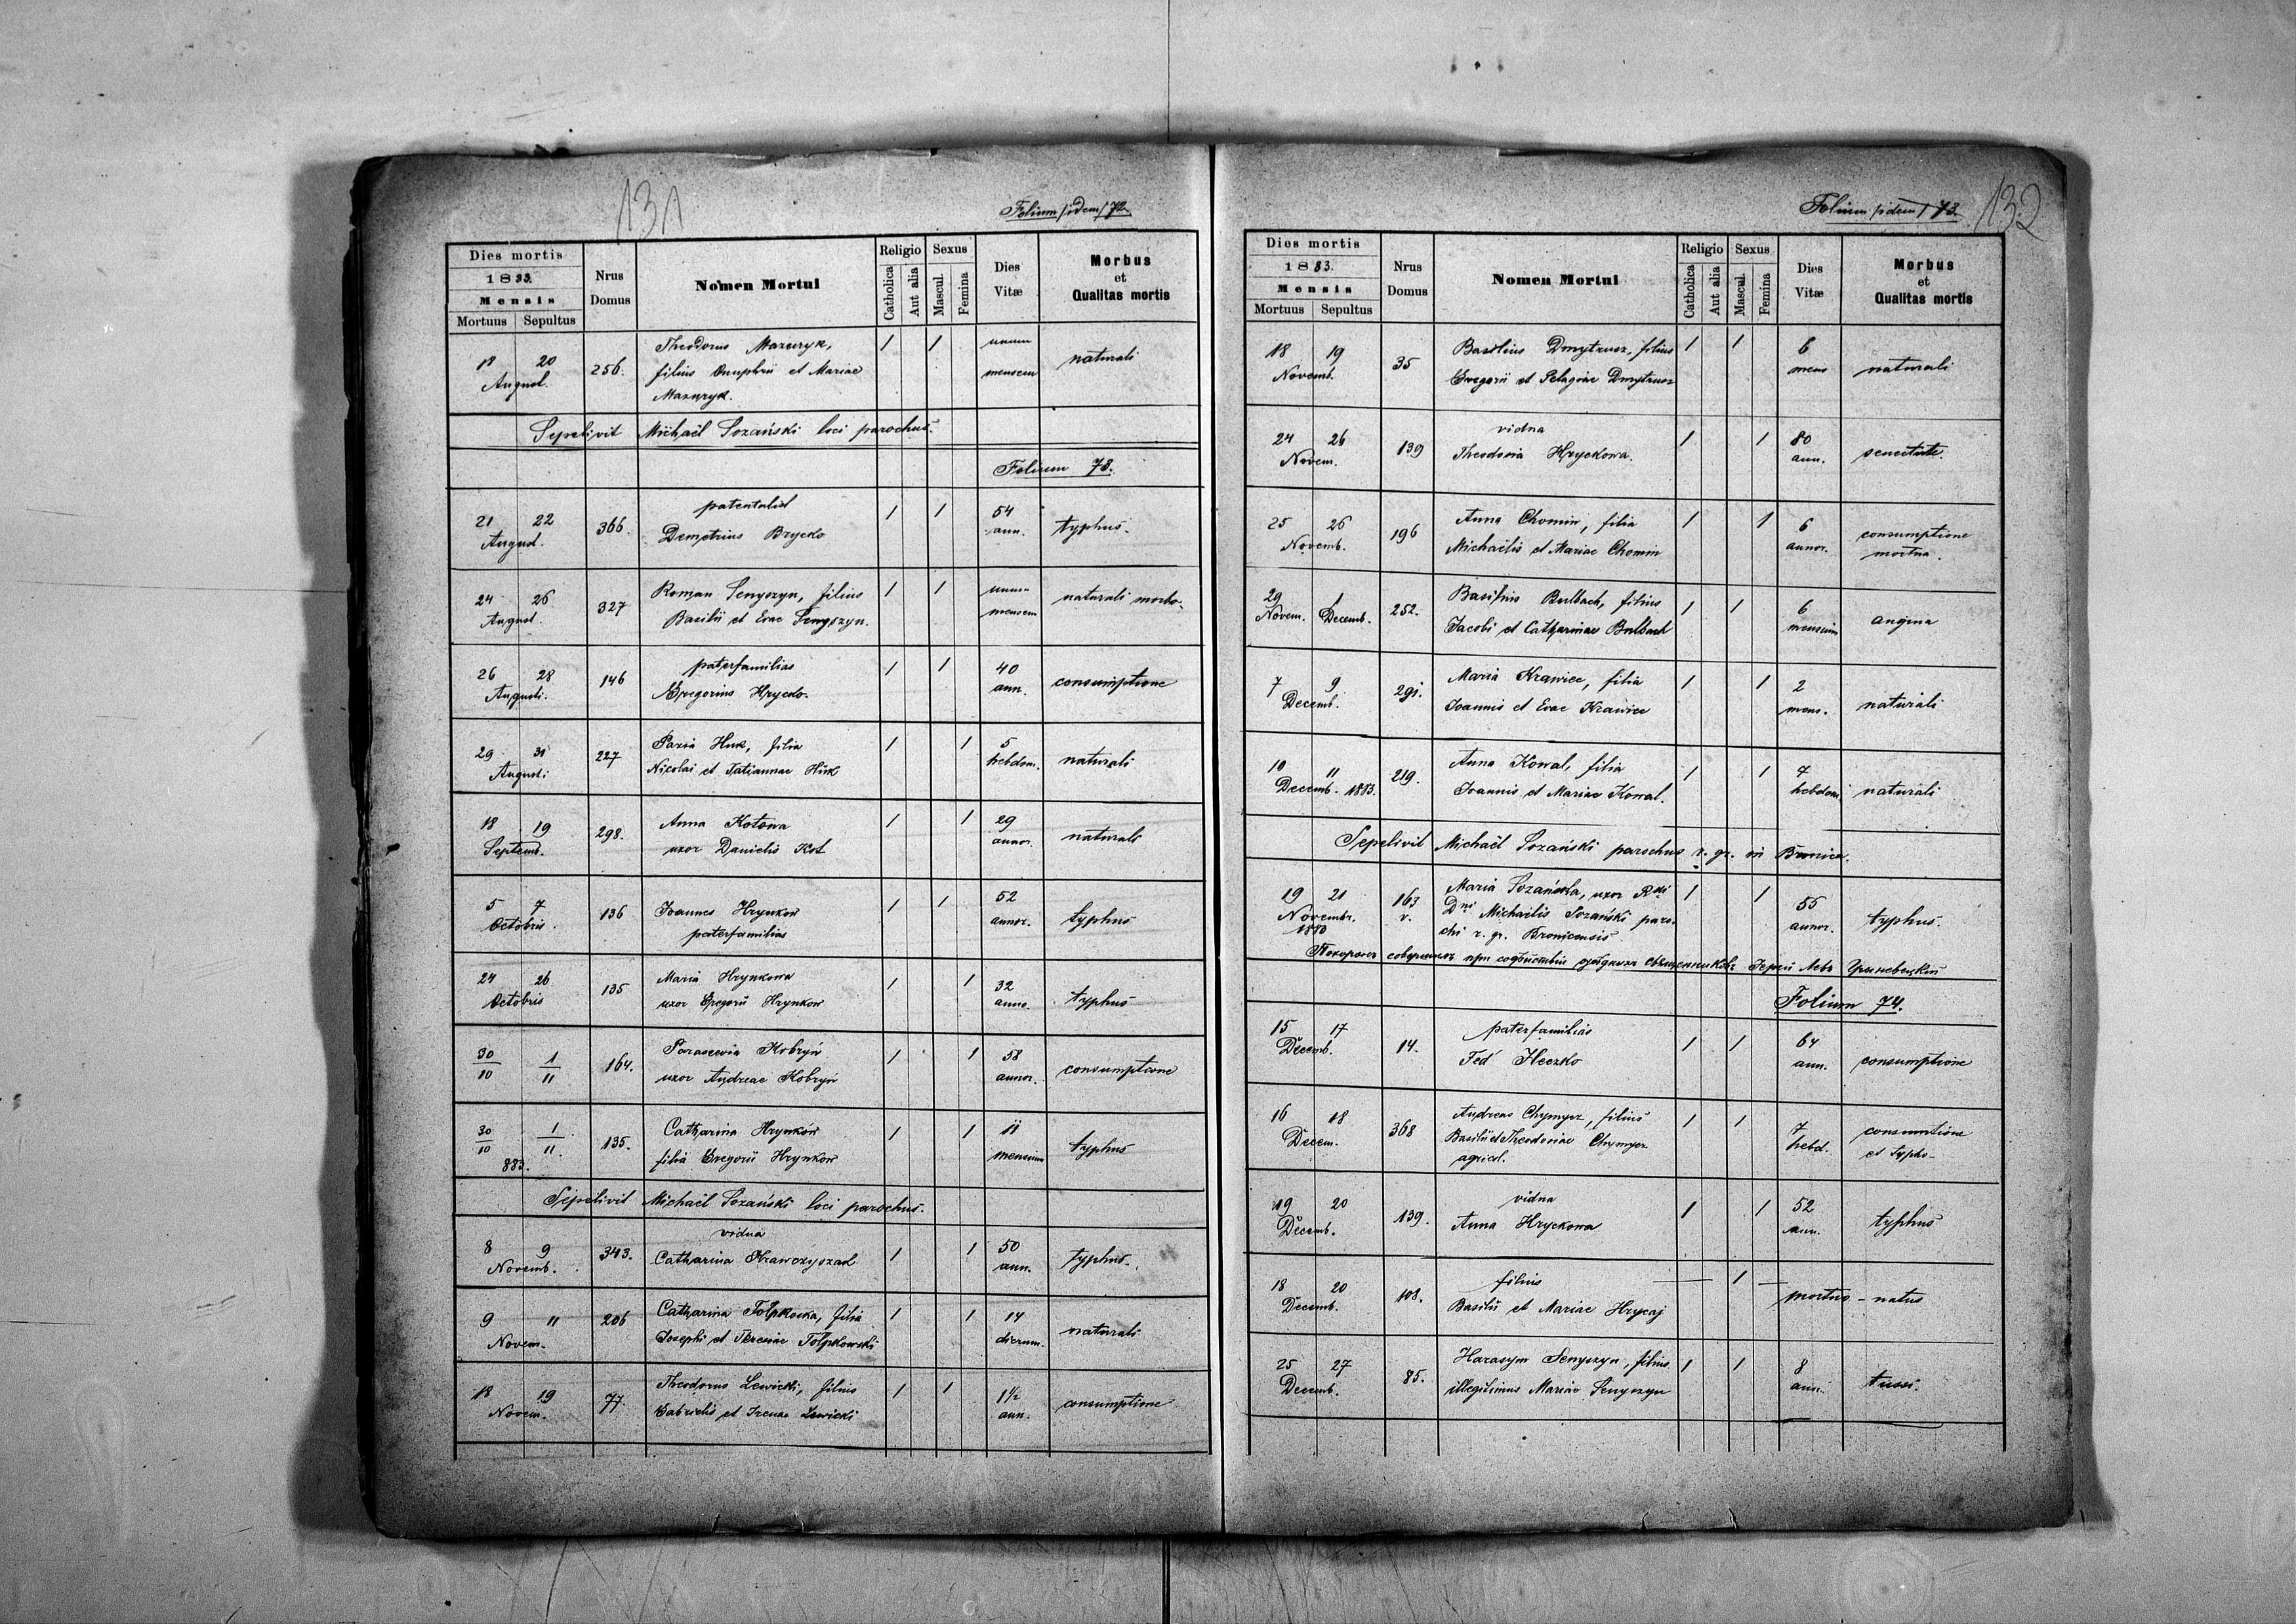 131
Folium /idem/ 72.
Dies mortis
1883.
Mensis
Mortuus Sepultus
Nrus Domus
Nomen Mortui
Religio
Catholica
Aut alia
Sexus
Mascul.
Femina
Dies Vitæ
Morbus
et
Qualitas mortis
18 20 256. Theodorus Mazuryk, 1 1 unum
August. filius Onuphrii et Mariae mensem naturali
Mazuryk.
Sepelivit Michaël Sozański loci parochus.
Folium 73.
patentalist
21 22 366. Demetrius Brycko 1 1 54 typhus.
August. ann.
24 26 327 Roman Senyszyn, filius 1 1 unum naturali morbo.
August. Basilii et Evae Senyszyn. mensem
paterfamilias
26 28 146 Gregorius Hrycko. 1 1 40 consumptione
Augusti. ann.
29 31 227 Pazia Huk, filia 1 1 5 naturali
Augusti Nicolai et Tatiannae Huk hebdom.
18 19 298. Anna Kotowa 1 1 29 naturali
Septemb. uxor Danielis Kot annor.
5 7 136 Joannes Hrynkow 1 1 52 typhus
Octobris. paterfamilias annor.
24 26 135 Maria Hrynkowa 1 1 32 typhus
Octobris uxor Gregorii Hrynkow anno.
30/10 1/11 164. Parascevia Kobryń 1 1 58 consumptione
uxor Andreae Kobryń annor.
30/10 1/11. 135. Catharina Hrynkow 1 1 11 typhus
883. filia Gregorii Hrynkow mensium
Sepelivit Michaël Sozański loci parochus.
vidua
8 9 343. Catharina Krawczyszad 1 1 50 typhus.
Novemb. ann.
9 11 206 Catharina Tołpkowska, filia 1 1 14 naturali
Novem. Josephi et Theresiae Tołpkowski dierum.
18 19 77. Theodorus Lewicki, filius 1 1 1½ consumptione
Novem. Gabrielis et Irenae Lewicki ann.
132
Folium /idem/ 73.
Dies mortis
1883.
Mensis
Mortuus Sepultus
Nrus Domus
Nomen Mortui
Religio
Catholica
Aut alia
Sexus
Mascul.
Femina
Dies Vitæ
Morbus
et
Qualitas mortis
18 19 35 Basilius Dmytrusz, filius 1 1 6 naturali
Novemb. Gregorii et Pelagiae Dmytrusz mens
vidua
24 26 139 Theodosia Hryckowa. 1 1 80 senectute.
Novem. ann.
25 26 196 Anna Chomin, filia 1 1 6 consumptione
Novemb. Michaëlis et Mariae Chomin annor. mortua.
29 1 252. Basilius Bulbach, filius 1 1 6 angina
Novem. Decemb. Jacobi et Catharinae Bulbach mensium
7 9 291. Maria Krawiec, filia 1 1 2 naturali
Decemb. Joannis et Evae Krawiec mens.
10 11 219. Anna Kowal, filia 1 1 7 naturali
Decemb. 1883. Joannis et Mariae Kowal. hebdom
Sepelivit Michaël Sozański parochus r. gr. in Bronica.
19 21 163 Maria Sozańska, uxor Rdi 1 1 55 typhus.
Novembr. v. Dni Michaëlis Sozański paro- annor.
1880 chi r. gr. Bronicensis
Folium 74.
paterfamilias
15 17 14. Fed Heczko 1 1 64 consumptione
Decemb. ann.
16 18 368 Andreas Chymycz, filius 1 1 7 consumtione
Decem. Basilii et Theodosiae Chymycz hebd. et typho
agricol.
vidua
19 20 139. Anna Hryckowa 1 1 52 typhus
Decemb. ann.
18 20 108. filius 1
Decemb. Basilii et Mariae Hrycaj mortuo - natus
25 27 85. Harasym Senyszyn, filius 1 1 8 tussi.
Decemb. illegitimus Mariae Senyszyn ann.